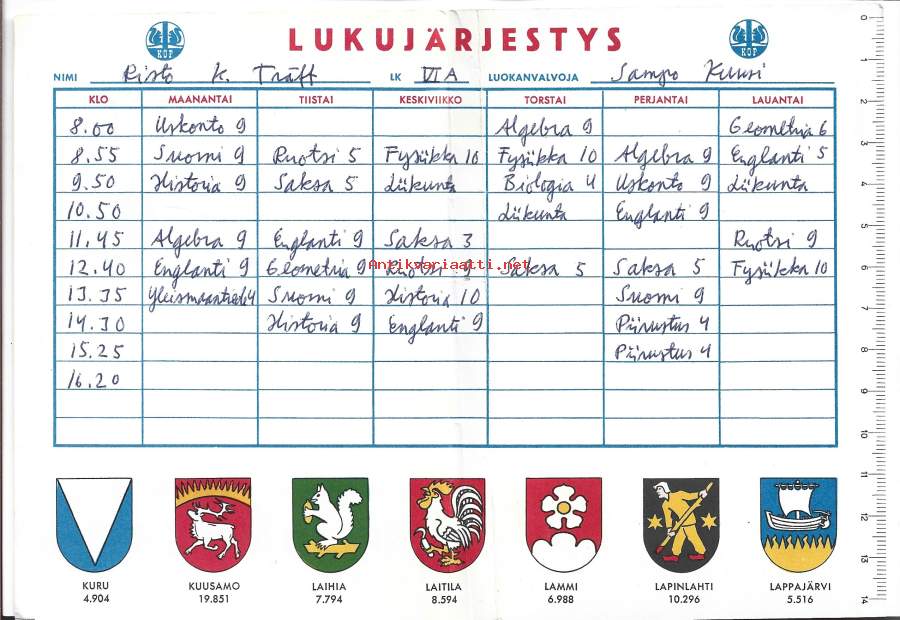 KOP LUKUJÄRJESTYS KOP
NIMI Risto K. Träff LK VI A LUOKANVALVOJA Sampo Kuusi
KLO MAANANTAI TIISTAI KESKIVIIKKO TORSTAI PERJANTAI LAUANTAI
8.00 Uskonto 9 Algebra 9 Geometria 6
8.55 Suomi 9 Ruotsi 5 Fysiikka 10 Fysiikka 10 Algebra 9 Englanti 5
9.50 Historia 9 Saksa 5 Liikunta Biologia 4 Uskonto 9 Liikunta
10.50 Liikunta Englanti 9
11.45 Algebra 9 Englanti 9 Saksa 3 Ruotsi 9
12.40 Englanti 9 Geometria 9 Ruotsi 9 Saksa 5 Saksa 5 Fysiikka 10
Antikvariaatti.net
13.35 Yleismaantiede 4 Suomi 9 Historia 10 Suomi 9
14.30 Historia 9 Englanti 9 Piirustus 4
15.25 Piirustus 4
16.20
KURU KUUSAMO LAIHIA LAITILA LAMMI LAPINLAHTI LAPPAJÄRVI
4.904 19.851 7.794 8.594 6.988 10.296 5.516
0
1
2
3
4
5
6
7
8
9
10
11
12
13
14